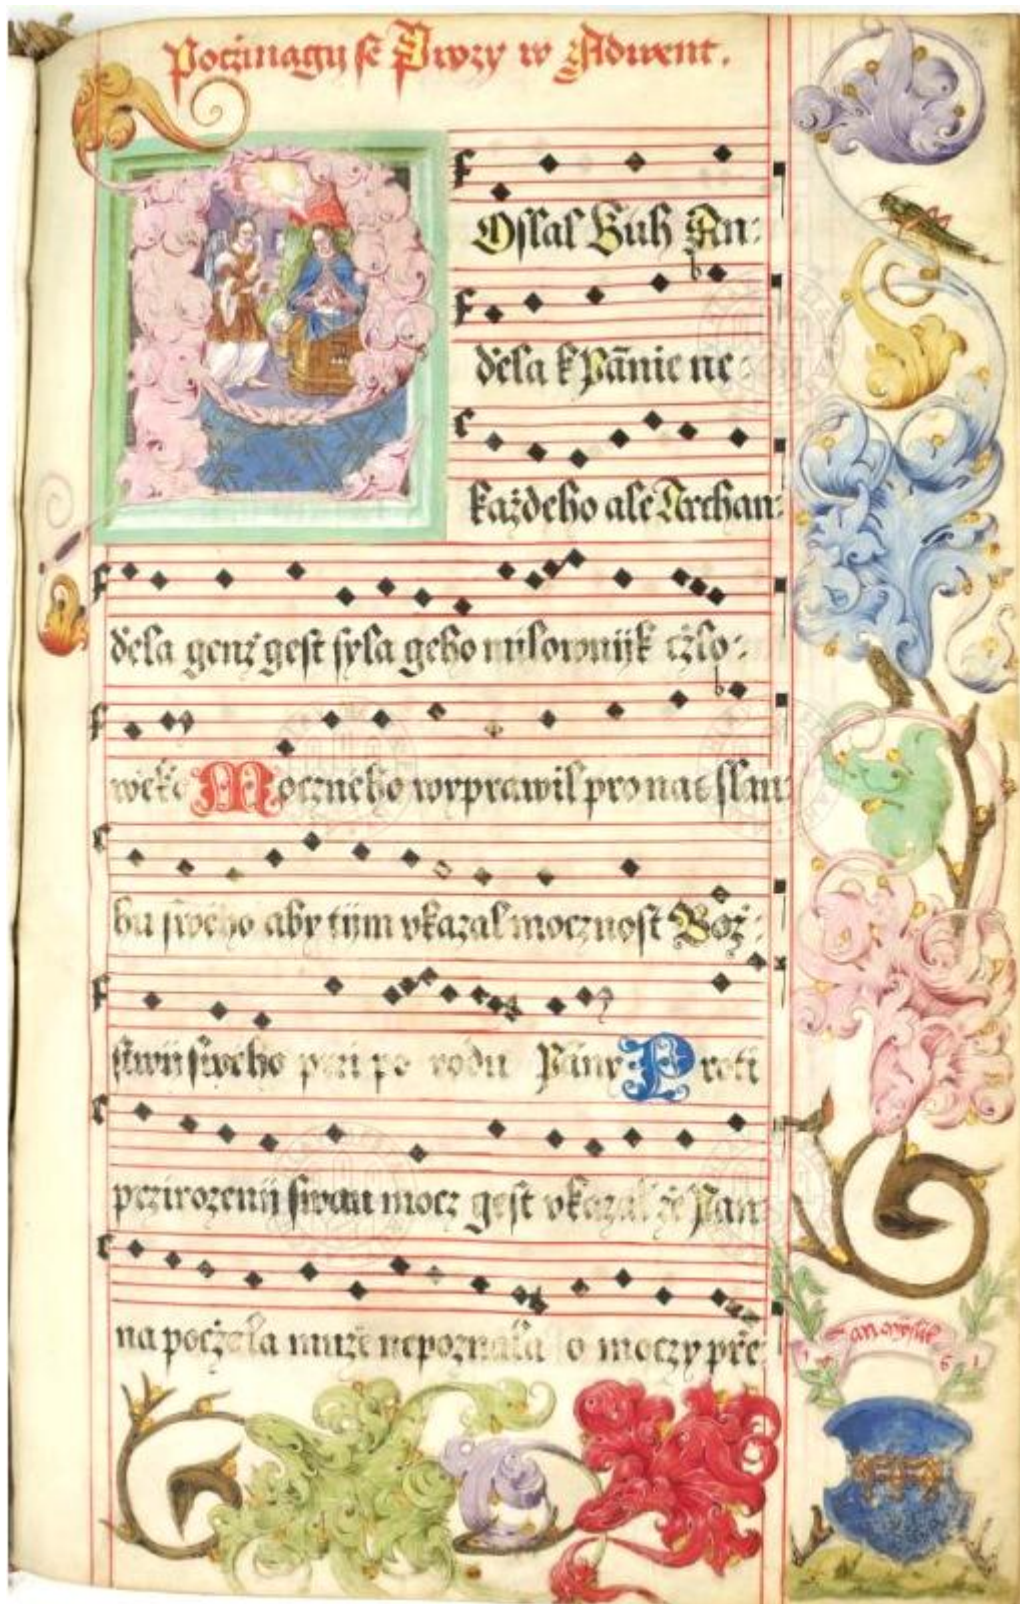 Počinagij se Prozy w Adwent.
POslal Buh An:
děla k Pānie ne:
každeho ale Archan:
děla genž gest syla geho milownijk čžlo:
weka Moczneho wyprawil pro nas slau:
bu sweho aby tijm vkazal mocznost Bož:
stwij sweho przi po rodu Pany Proti
przirozenij swau mocz gest vkazal že Pan:
na počžala muže nepoznala o moczy pře:
Jan
1 6 1